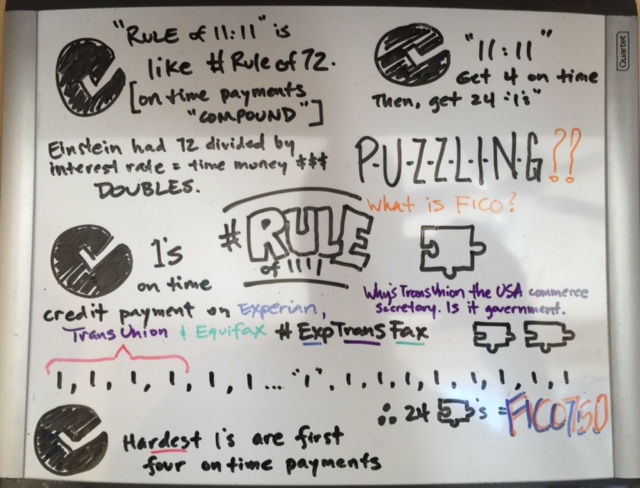 "RULE of 11:11" is
like # Rule of 72.
[on time payments
"COMPOUND"]
Einstein had 72 divided by
interest rate = time money $$$
DOUBLES.
"11:11"
Get 4 on time
Then, get 24 "1's"
P-U-Z-Z-L-I-N-G??
What is FICO?
#RULE
of 1111
1's
on time
credit payment on Experian,
TransUnion + Equifax # ExpTransFax
Why's TransUnion the USA commerce
Secretary. Is it government.
1, 1, 1, 1, 1, 1, 1 ... "1", 1, 1, 1, 1, 1, 1, 1, 1, 1
∴ 24 's = FICO 750
Hardest 1's are first
four on time payments
Quartet